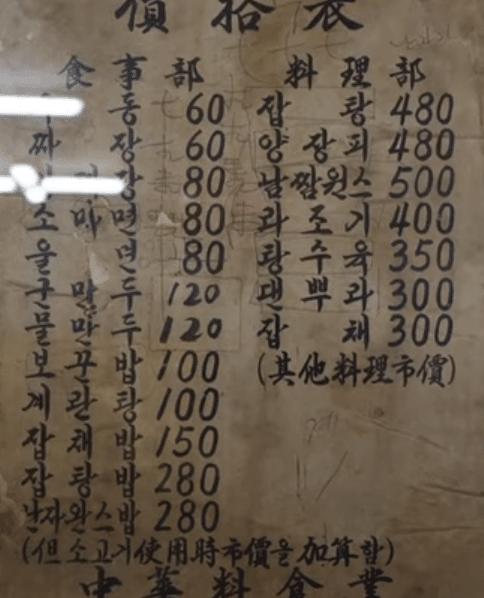 價拾表
食事部
동 60
짜장 60
장 80
소마면 80
울면 80
군만두 120
물만두 120
보끈밥 100
계란탕 100
잡채밥 150
잡탕밥 280
난자완스밥 280
(但 소고기使用時市價을 加算함)
料理部
잡탕 480
양장피 480
500
라조기 400
탕수육 350
덴뿌라 300
잡채 300
(其他料理市價)
中華料食業